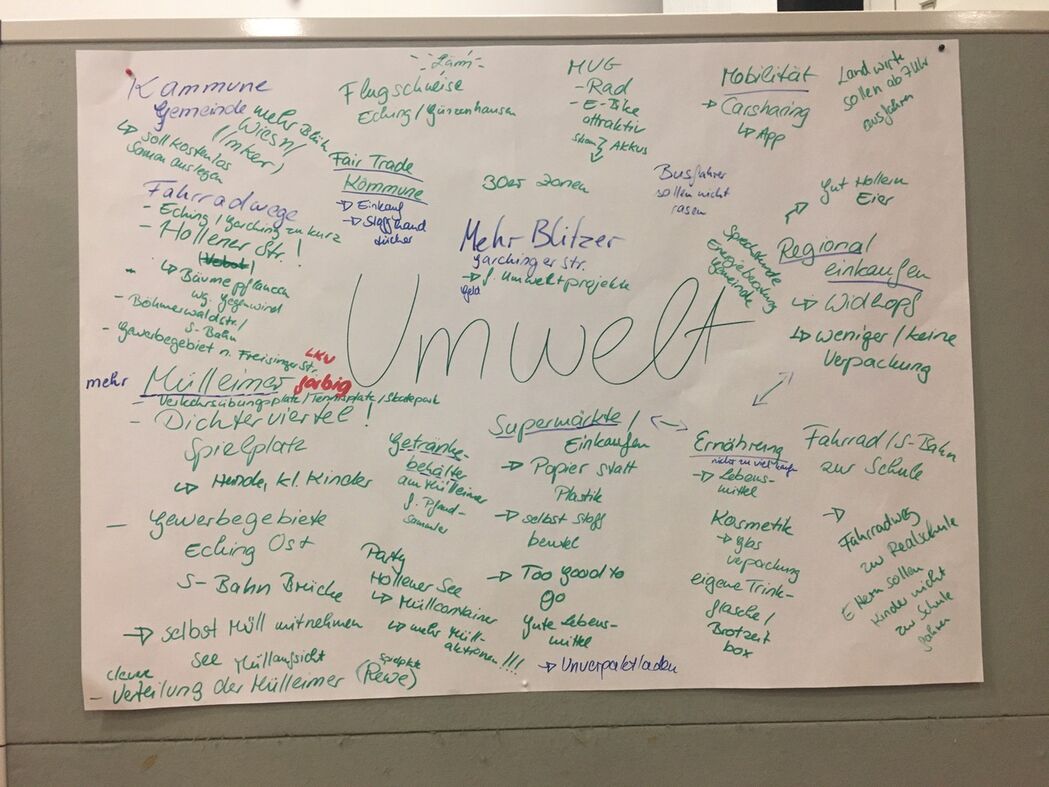 Kommune
Gemeinde
mehr Blüh
Wiesn/
(Imker)
↳ soll kostenlos
Samen auslegen
Lärm
Flugschneise
Eching/Günzenhausen
MUG
- Rad
- E-Bike
attraktiv
Strom } Akkus
Mobilität
→ Carsharing
↳ App
Landwirte
sollen ab 7 Uhr
ausfahren
Fair Trade
Kommune
→ Einkauf
→ Stoffhand
tücher
30er Zonen
Busfahrer
sollen nicht
rasen
Gut Hollern
Eier
Regional
einkaufen
↳ Widhopf
↳ weniger/keine
Verpackung
Sprechstunde
Energieberatung
Gemeinde
Fahrradwege
- Eching/Garching zu kurz
- Hollener Str. !
↳ Bäume pflanzen
wg. Gegenwind
- Böhmerwaldstr./
S-Bahn
- Gewerbegebiet n. Freisinger Str.
LKW
Mehr Blitzer
Garchinger Str.
→ f. Umweltprojekte
Geld
Umwelt
mehr Mülleimer farbig
- Verkehrsübungsplatz/Tennisplatz/Skatepark
- Dichterviertel !
Spielplatz
↳ Hunde, kl. Kinder
- Gewerbegebiete
Eching Ost
S-Bahn Brücke
→ selbst Müll mitnehmen
See Müllaufsicht
clevere
- Verteilung der Mülleimer (Rewe)
Spielplatz
Getränke-
behälter
am Mülleimer
f. Pfand-
sammler
Party
Hollener See
↳ Müllcontainer
↳ mehr Müll-
aktionen !!!
Supermärkte/
Einkaufen
→ Papier statt
Plastik
→ selbst Stoff
beutel
→ Too good to
go
gute Lebens-
mittel
→ Unverpacktladen
Ernährung
nicht zu viel kaufen
→ Lebens-
mittel
Kosmetik
→ Glas
verpackung
eigene Trink-
flasche/
Brotzeit
box
Fahrrad/S-Bahn
zur Schule
→ Fahrradweg
zur Realschule
Eltern sollen
Kinder nicht
zur Schule
fahren